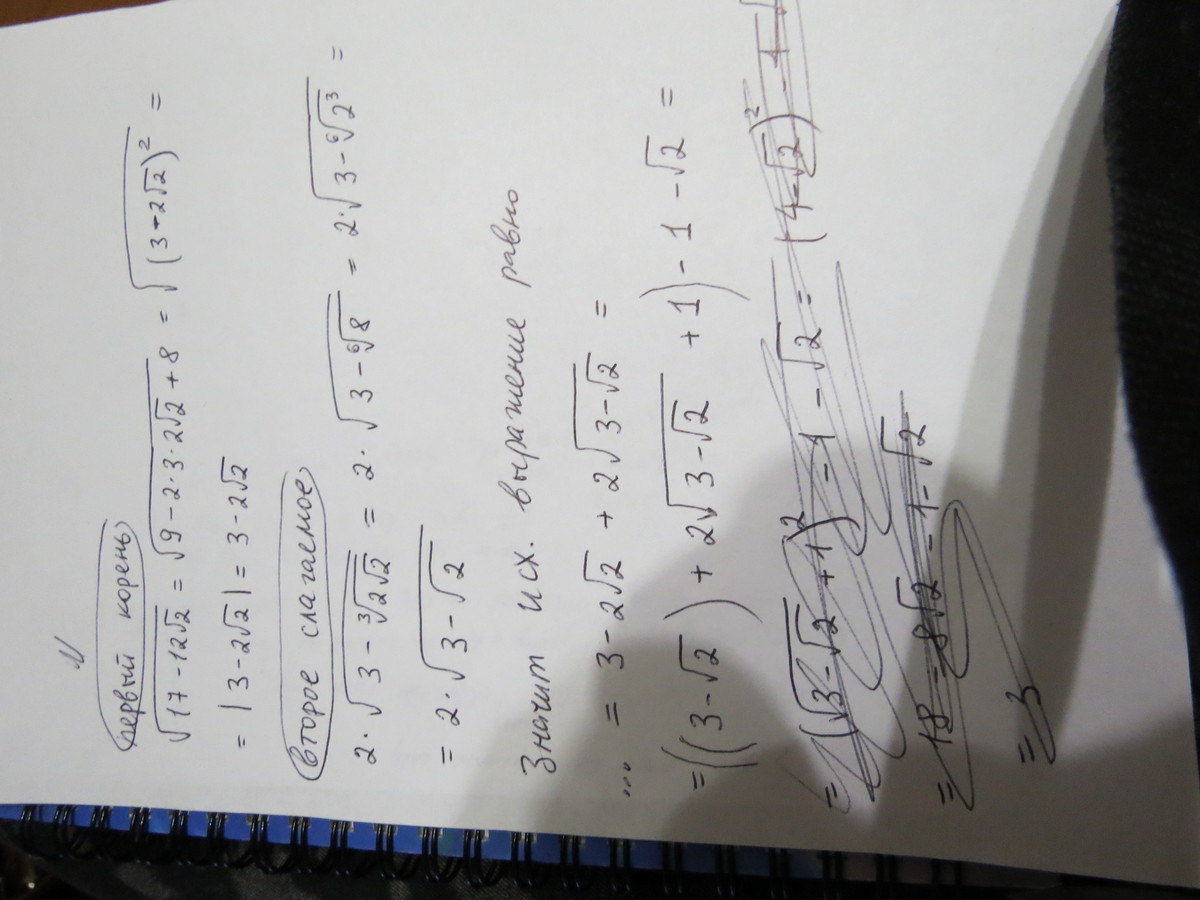 первый корень
√(17-12√2) = √(9-2·3·2√2+8) = √((3-2√2)²) =
= |3-2√2| = 3-2√2
второе слагаемое
2·√(3-∛(2√2)) = 2·√(3-⁶√8) = 2·√(3-⁶√(2³)) =
= 2·√(3-√2)
Значит исх. выражение равно
... = 3-2√2 + 2√(3-√2) =
=((3-√2) + 2√(3-√2) + 1) - 1 - √2 =
= (√(3-√2)+1)² - 1 - √2 = (4-√2)² - 1 - √
= 18 - 8√2 - 1 - √2
= 3